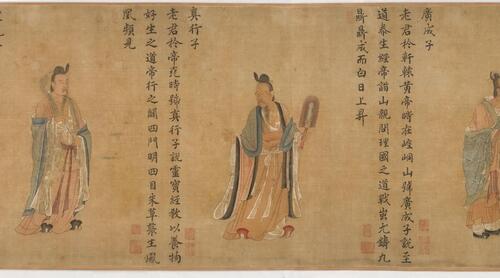 廣成子
老君於軒轅黄帝時在崆峒山號廣成子說至
道泰生經帝詣山親問理國之道戰蚩尤鑄九
鼎鼎成而白日上昇
真行子
老君於帝時號真行子說靈寶經教以養物
好生之道帝行之闢四門明四目朱草藂生鳳
凰頻見